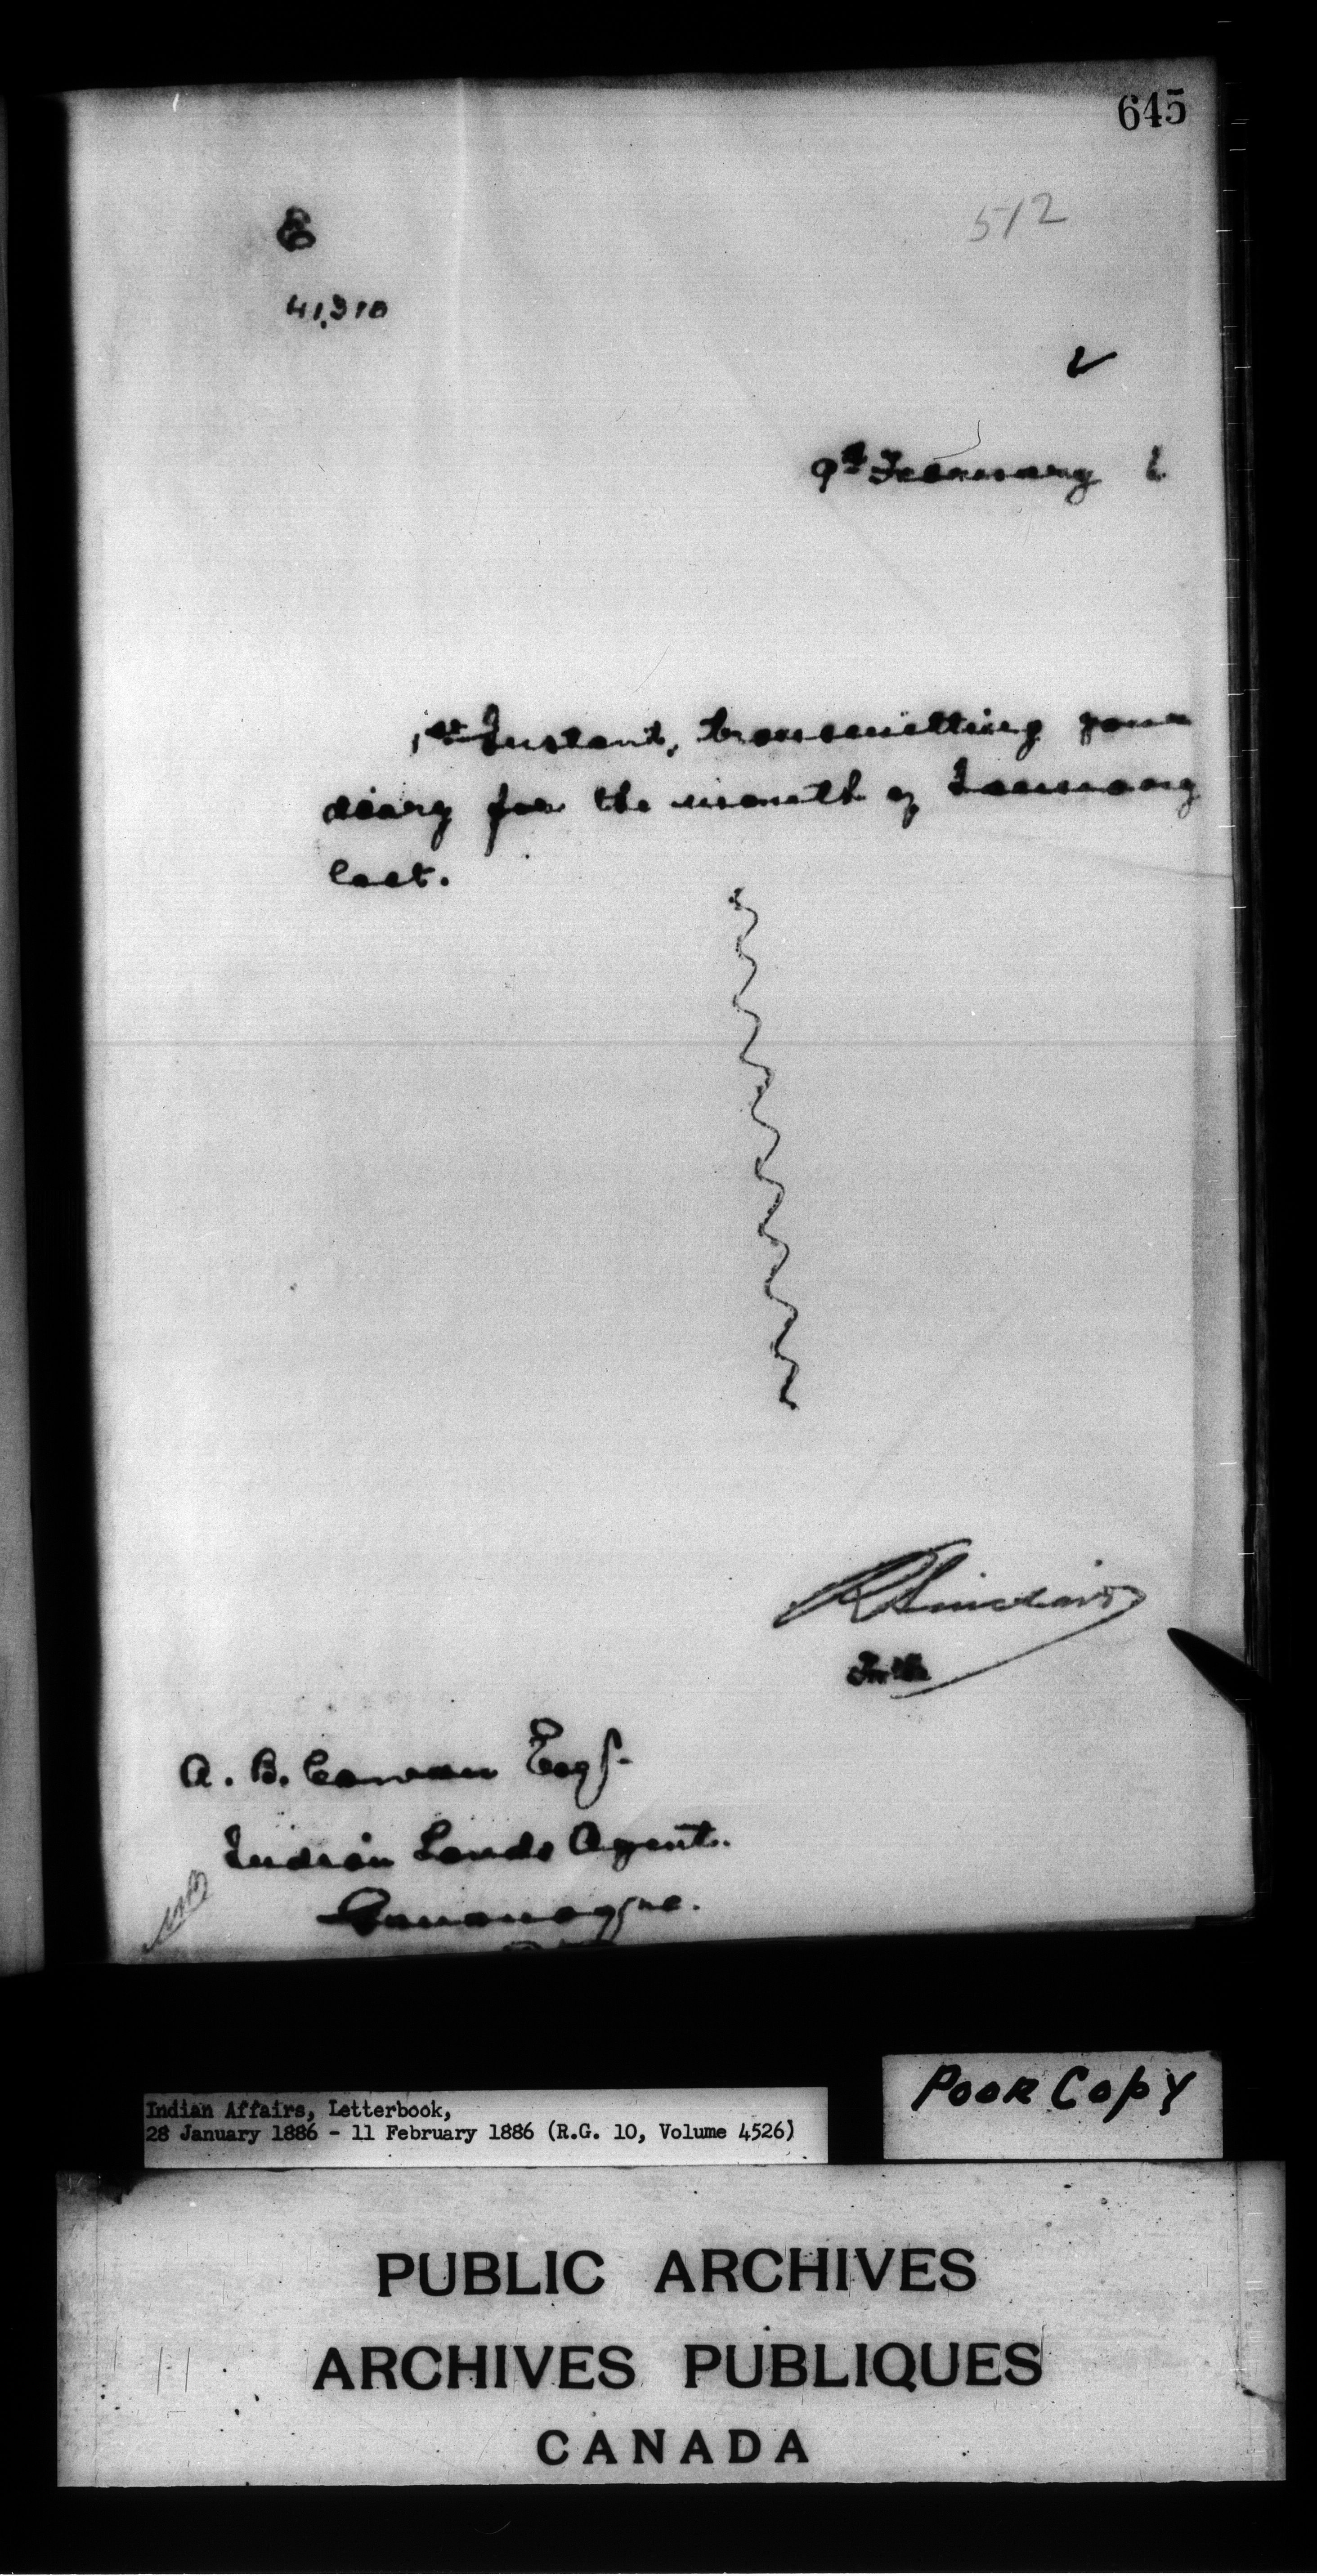 645
512
E
41,310
9th February 6
1st Instant, transmitting your
diary for the month of January
last.
R Sinclair
A. B. Cowan Esqr.
Indian Lands Agent.
Gananoque.
Poor Copy
Indian Affairs, Letterbook,
28 January 1886 - 11 February 1886 (R.G. 10, Volume 4526)
PUBLIC ARCHIVES
ARCHIVES PUBLIQUES
CANADA